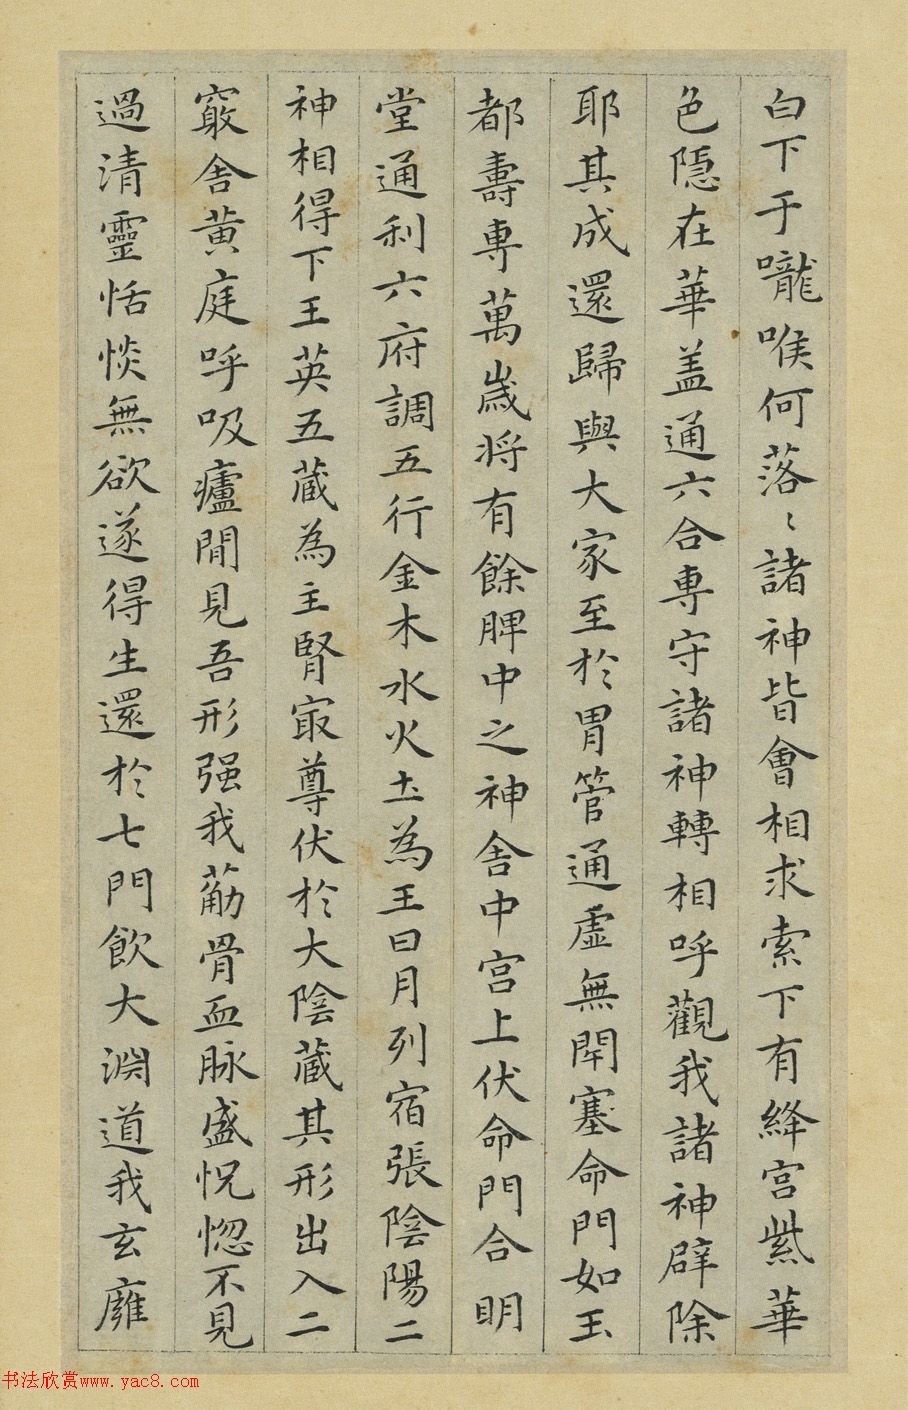 白下于嚨喉何落〻諸神皆會相求索下有絳宮紫華
色隱在華盖通六合專守諸神轉相呼觀我諸神辟除
耶其成還歸與大家至於胃管通虛無閉塞命門如玉
都壽專萬歲将有餘脾中之神舍中宮上伏命門合明
堂通利六府調五行金木水火土為王日月列宿張陰陽二
神相得下王英五蔵為主腎㝡尊伏於大陰蔵其形出入二
竅舍黄庭呼吸廬間見吾形强我筋骨血脉盛怳惚不見
過清靈恬惔無欲遂得生還於七門飲大淵道我玄廱
书法欣赏www.yac8.com